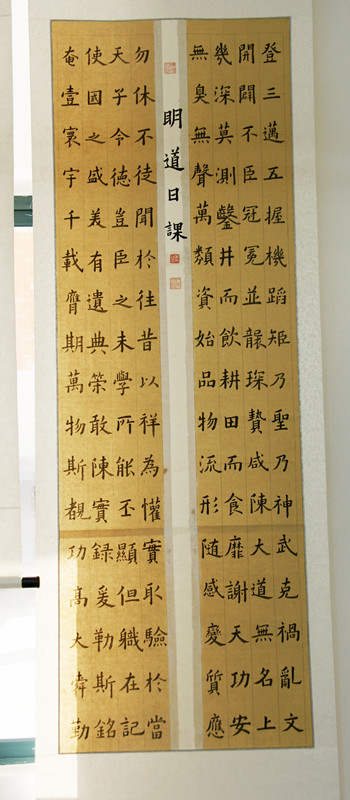 登三邁五握機蹈矩乃聖乃神武克禍亂文
開闢不臣冠冕並襲琛贄咸陳大道無名上
幾深莫測鑿井而飲耕田而食靡謝天功安
無臭無聲萬類資始品物流形随感變質應
明道日課
勿休不徒聞於往昔以祥為懼實取驗於當
天子令德豈臣之末學所能丕顯但職在記
使國之盛美有遺典策敢陳實録爰勒斯銘
奄壹寰宇千載膺期萬物斯覩功高大舜勤